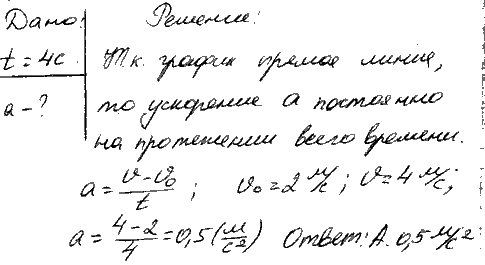 Дано: Решение:
t = 4с Т.к. график прямая линия,
a - ? то ускорение a постоянно
на протяжении всего времени.
a = (v - v₀)/t ; v₀ = 2 м/с ; v = 4 м/с ;
a = (4 - 2)/4 = 0,5 (м/с²) Ответ: А. 0,5 м/с²